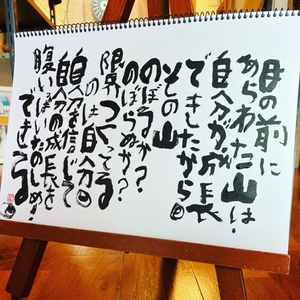 目の前に
あらわれた山は!
自分が成長
できたから
その山
のぼるか?
のぼらぬか?
限界つくってる
のは自分
自分を信じて
自分の成長を
腹いっぱいたのしめ!